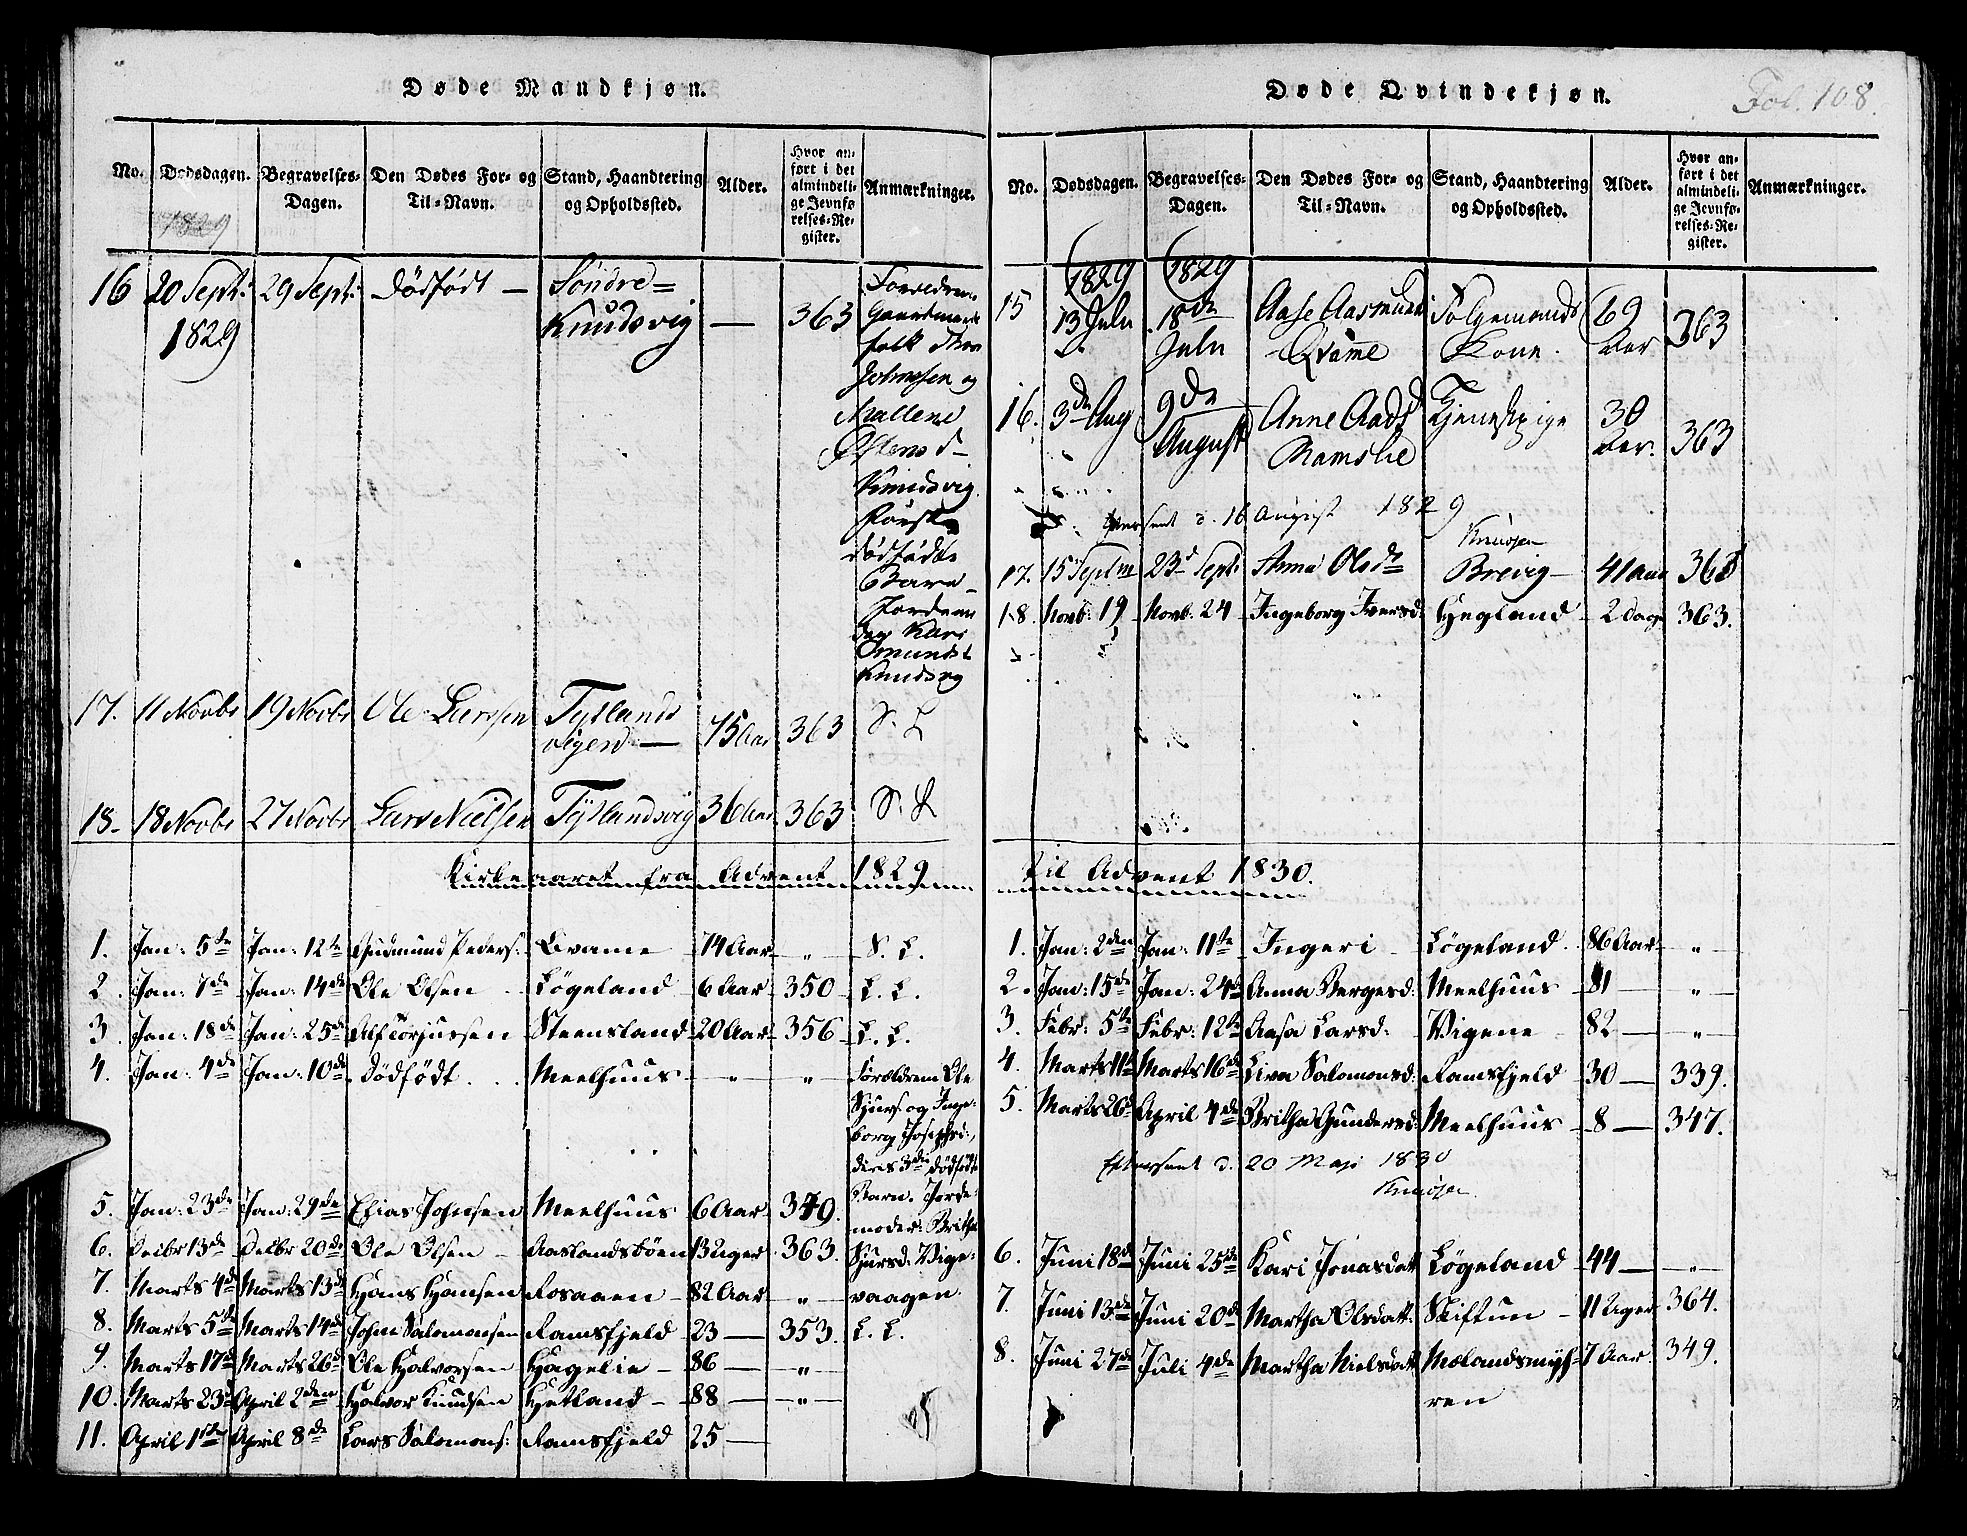 Døde Mandkjøn.
No. Dødsdagen. Begravelses-Dagen. Den Dødes For- og Til-Navn. Stand, Haandtering og Opholdssted. Alder. Hvor anført i det almindelige Jevnførelses-Register. Anmærkninger.
1829
16 20 Sept: 1829 29 Sept: Dödfödt — Söndre= Knudsvig — 363
Mallene
Knudsvig
dödfödte
Barn
Knudsvig
17. 11 Novbr 19 Novbr Ole Larssen Tytlandsvigen — 75 Aar 363 S. L
18 18 Novbr 27 Novbr Lars Nielsen Tytlandsvig 36 Aar 363 S. L
Kirkeaaret fra Advent 1829
1. Jan: 5te Jan: 12te Gudmund Peders: Qvame 74 Aar „ S. L.
2. Jan: 7de Jan: 14de Ole Olsen Løgeland 6 Aar 350 L. L.
3. Jan: 18de Jan: 25de Alf Torjussen Steensland 20 Aar 356 L. L.
4. Jan: 4de Jan: 10de Dödfödt . . . Meelhuus „ „ Forældrene Ole
Sjurs: og Inge-
borg Josephsd:,
deres 3die dödfödte
Barn. Jorde-
moder: Britha
Sjursd: Vige-
vaagen.
5. Jan: 23de Jan: 29de Elias Johnsen Meelhuus 6 Aar 349.
6. Decbr 13de Decbr 20de Ole Olsen — Aaslandsböen 13 Uger 363.
7. Marts 4de Marts 13de Hans Hansen Rosaaen 82 Aar „
8. Marts 5te Marts 14de John Salomonsen Ramsfjeld 23 — 353. L. L.
9. Marts 17de Marts 26de Ole Halvorsen Hagelie — 86 — „
10. Marts 23de April 2den Halvor Knudsen Hetland — 88 — „
11. April 1ste April 8de Lars Salomons: Ramsfjeld 25 —
Døde Qvindekjøn.
Fol. 108.
No. Dødsdagen. Begravelses-Dagen. Den Dødes For- og Til-Navn. Stand, Haandtering og Opholdssted. Alder. Hvor anført i det almindelige Jevnførelses-Register. Anmærkninger.
1829 1829
15 13 July 18de July Aase Aasmunds Qvame Folgemands Kone. 69 Aar 363
16. 3de Aug 9de August Anne Aadsd Ramslie Tjenestpige 30 Aar. 363
Eftersent d. 16 August 1829
Knudsen
17. 15 Septm 23d Sept: Anna Olsd Brevig — 41 Aar 363
18. Novb: 19 Novb: 24 Ingeborg Iversd: Hegland 2 Dage 363.
til Advent 1830.
1. Jan: 2den Jan: 11te Ingeri — Løgeland. 86 Aar „
2. Jan: 15de Jan: 24de Anna Bergesd: Meelhuus 81 — „
3. Febr: 5te Febr: 12te Aasa Larsd: Vigene 82 — „
4. Marts 11te Marts 16de Liva Salomonsd: Ramsfjeld 30 — 339.
5. Marts 26de April 4de Britha Gundersd: Meelhuus 8 — 347.
Eftersent d. 20 Maji 1830
Knudsen
6. Juni 18de Juni 25de Kari Jonasdatt: Løgeland 44 — „
7. Juni 13de Juni 20de Martha Olsdatt: Skiftun — 11 Uger 364.
8. Juni 27de Juli 4de Martha Nielsdatt: Mælandsmyh-
ren 7 Aar. 349.